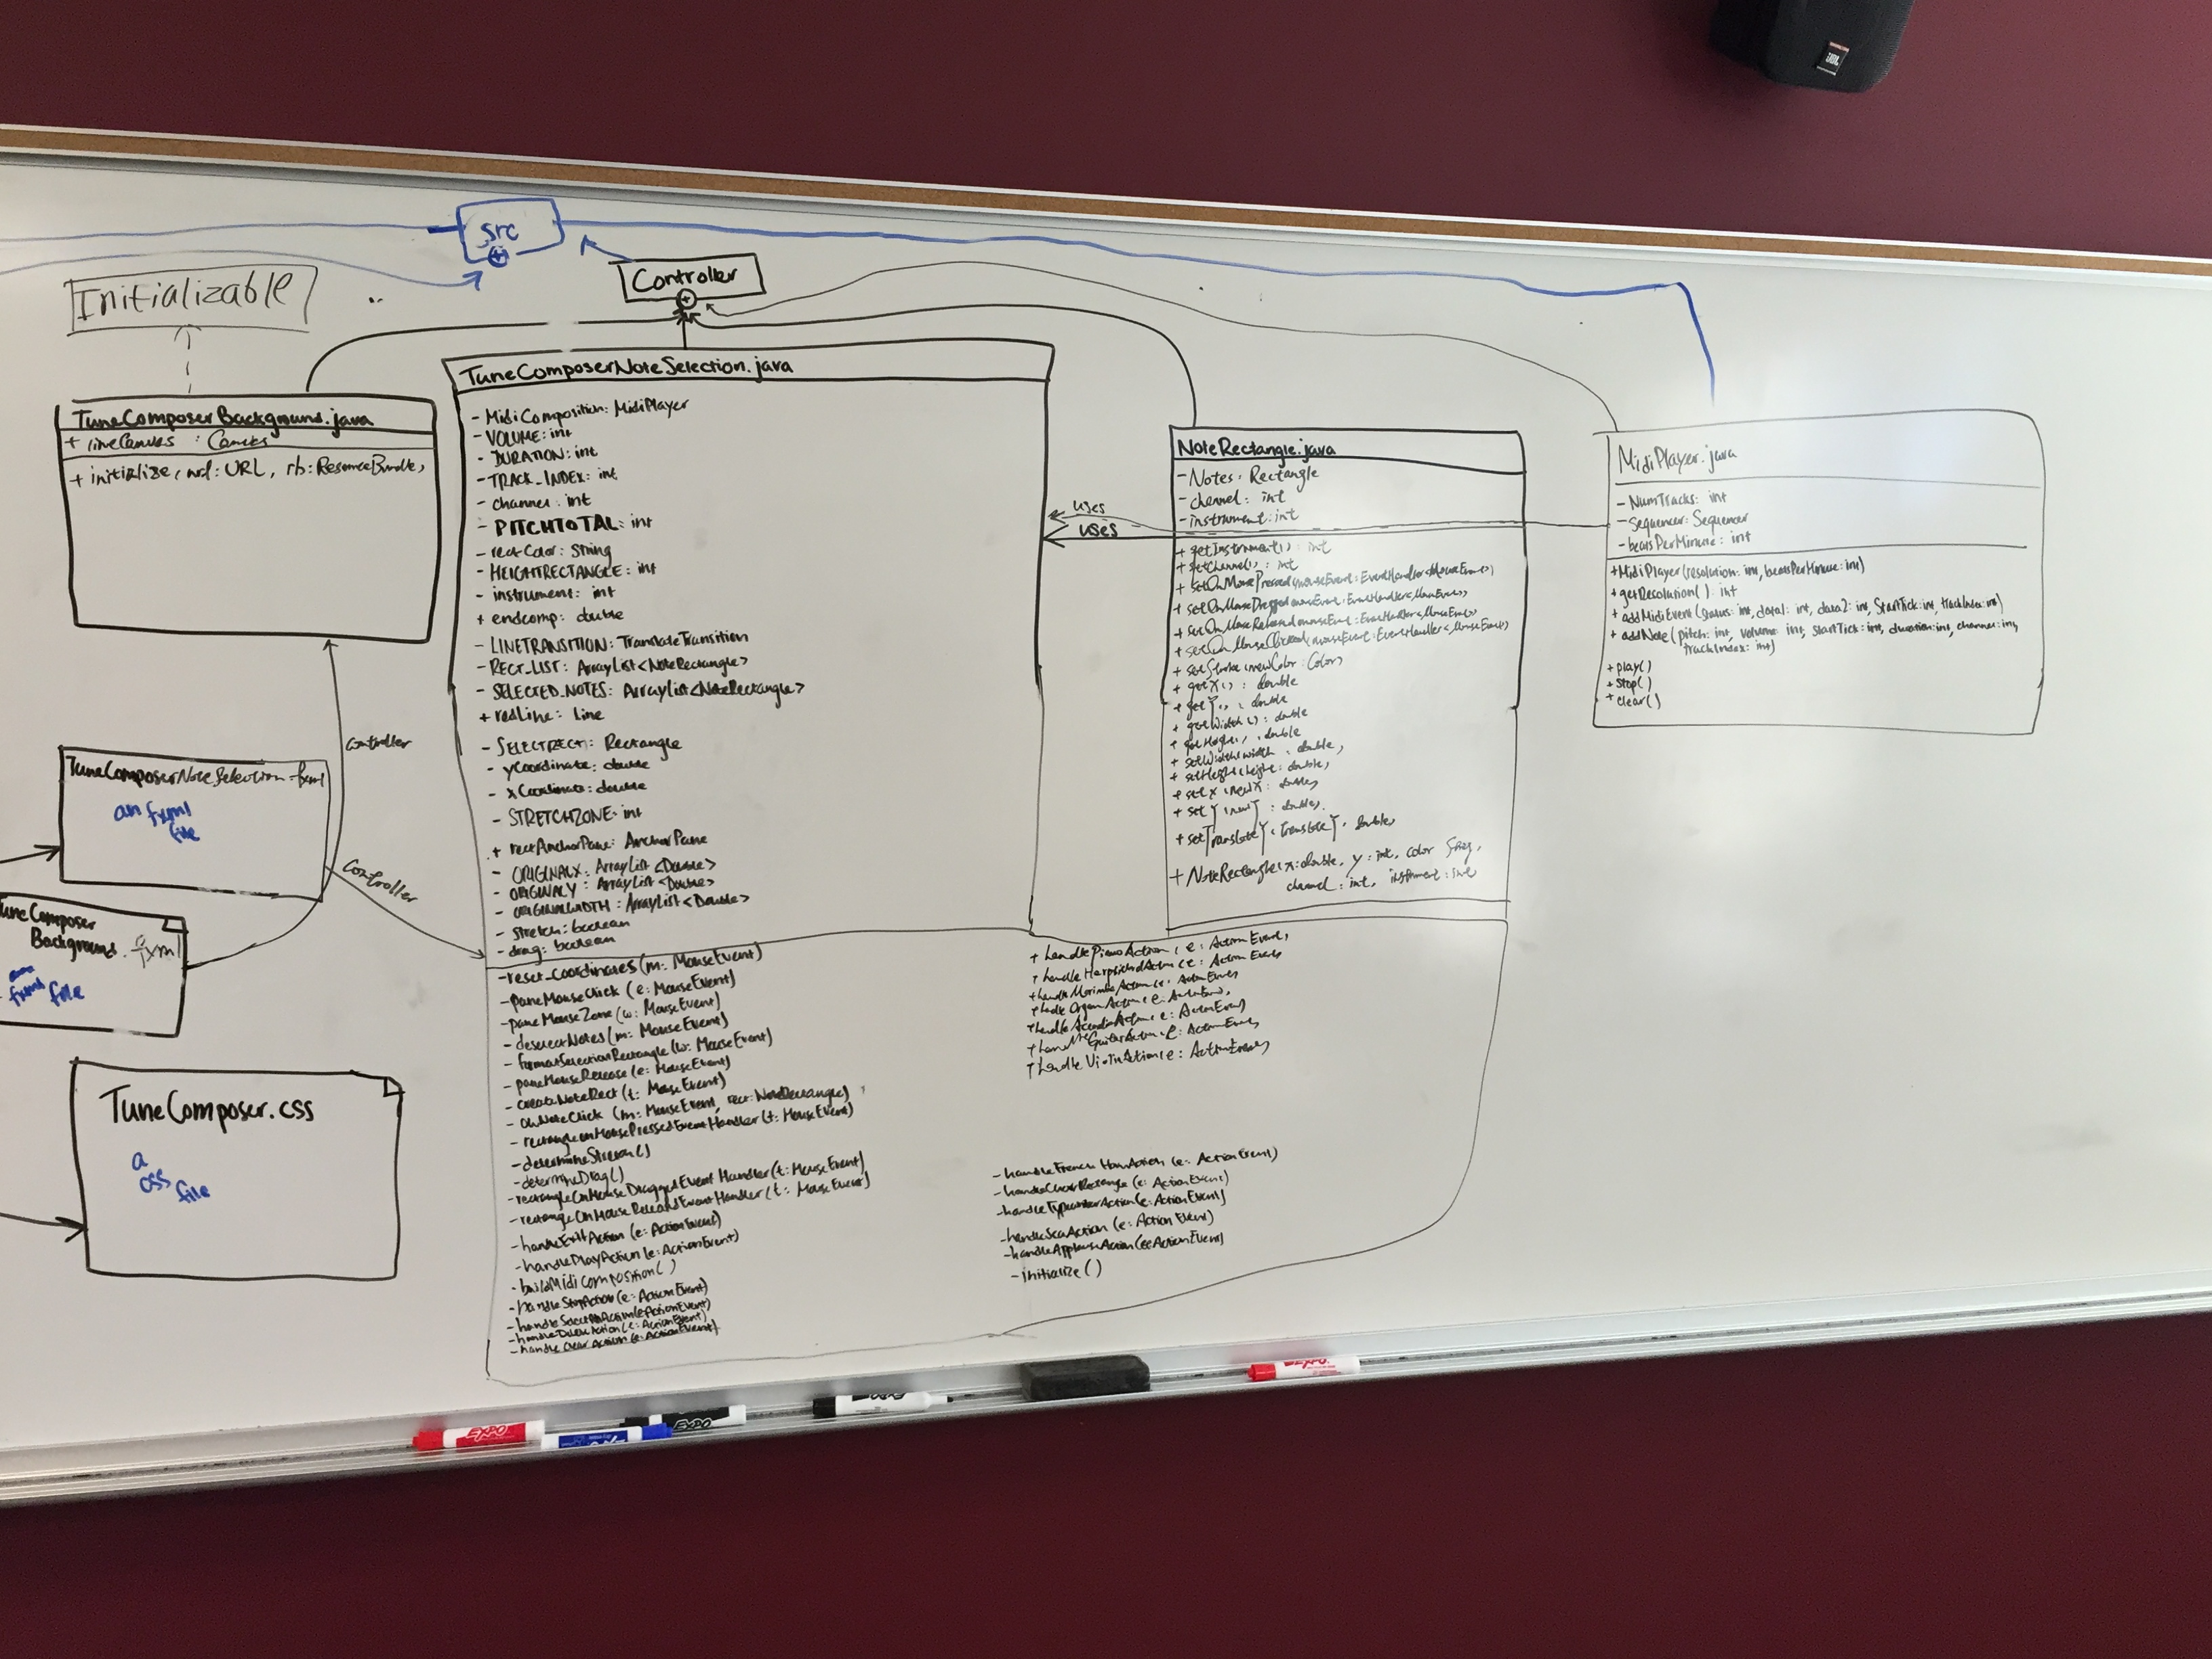 JBL
src
Initializable
Controller
TuneComposerBackground.java
+ lineCanvas : Canvas
+ initialize, url: URL, rb: ResourceBundle,
TuneComposerNoteSelection.java
- MidiComposition: MidiPlayer
- VOLUME: int
- DURATION: int
- TRACK_INDEX: int
- channel: int
- PITCHTOTAL: int
- rectColor: String
- HEIGHTRECTANGLE: int
- instrument: int
+ endcomp: double
- LINETRANSITION: TranslateTransition
- RECT_LIST: ArrayList<NoteRectangle>
- SELECTED_NOTES: ArrayList<NoteRectangle>
+ redLine: Line
- SELECTRECT: Rectangle
- yCoordinate: double
- xCoordinate: double
- STRETCHZONE: int
+ rectAnchorPane: AnchorPane
- ORIGINALX: ArrayList <Double>
- ORIGINALY: ArrayList <Double>
- ORIGINALWIDTH: ArrayList <Double>
- stretch: boolean
- drag: boolean
- reset_coordinates (m: MouseEvent)
- paneMouseClick (e: MouseEvent)
- paneMouseZone (w: MouseEvent)
- deselectNotes (m: MouseEvent)
- formatSelectionRectangle (w: MouseEvent)
- paneMouseRelease (e: MouseEvent)
- createNoteRect (t: MouseEvent)
- onNoteClick (m: MouseEvent, rect: NoteRectangle)
- rectangleOnMousePressedEventHandler (t: MouseEvent)
- determineStretch ()
- determineDrag()
- rectangleOnMouseDraggedEventHandler (t: MouseEvent)
- rectangleOnMouseReleasedEventHandler (t: MouseEvent)
- handleExitAction (e: ActionEvent)
- handlePlayAction (e: ActionEvent)
- buildMidiComposition()
- handleStopAction (e: ActionEvent)
- handleSelectAllAction (e: ActionEvent)
- handleDeleteAction (e: ActionEvent)
- handleClearAction (e: ActionEvent)
+ handlePianoAction, e: ActionEvent,
+ handleHarpsichordAction, e: ActionEvent
+ handleMarimbaAction, e: ActionEvent
+ handleOrganAction, e: ActionEvent,
+ handleAccordionAction, e: ActionEvent)
+ handleGuitarAction, e: ActionEvent,
+ handleViolinAction, e: ActionEvent,
- handleFrenchHornAction (e: ActionEvent)
- handleClearRectangle (e: ActionEvent)
- handleTypewriterAction (e: ActionEvent)
- handleSeaAction (e: ActionEvent)
- handleApplauseAction (e: ActionEvent)
- initialize ()
uses
uses
NoteRectangle.java
- Notes: Rectangle
- channel: int
- instrument: int
+ getInstrument() : int
+ getChannel() : int
+ setOnMousePressed (mouseEvent: EventHandler<MouseEvent>)
+ setOnMouseDragged (mouseEvent: EventHandler<MouseEvent>)
+ setOnMouseReleased (mouseEvent: EventHandler<MouseEvent>)
+ setOnMouseClicked (mouseEvent: EventHandler<MouseEvent>)
+ setStroke (newColor: Color)
+ getX() : double
+ getY() : double
+ getWidth() : double
+ getHeight() : double
+ setWidth (width : double)
+ setHeight (height : double)
+ setX (newX : double)
+ setY (newY : double)
+ setTranslateY (translateY : double)
+ NoteRectangle (x: double, y: int, color String,
channel: int, instrument: int)
MidiPlayer.java
- NumTracks: int
- Sequencer: Sequencer
- beatsPerMinute: int
+ MidiPlayer (resolution: int, beatsPerMinute: int)
+ getResolution() : int
+ addMidiEvent (status: int, data1: int, data2: int, StartTick: int, trackIndex: int)
+ addNote (pitch: int, volume: int, startTick: int, duration: int, channel: int,
trackIndex: int)
+ play()
+ stop()
+ clear()
controller
TuneComposerNoteSelection.fxml
an fxml
file
controller
TuneComposer
Background.fxml
fxml file
TuneComposer.css
a
css
file
EXPO
EXPO
EXPO